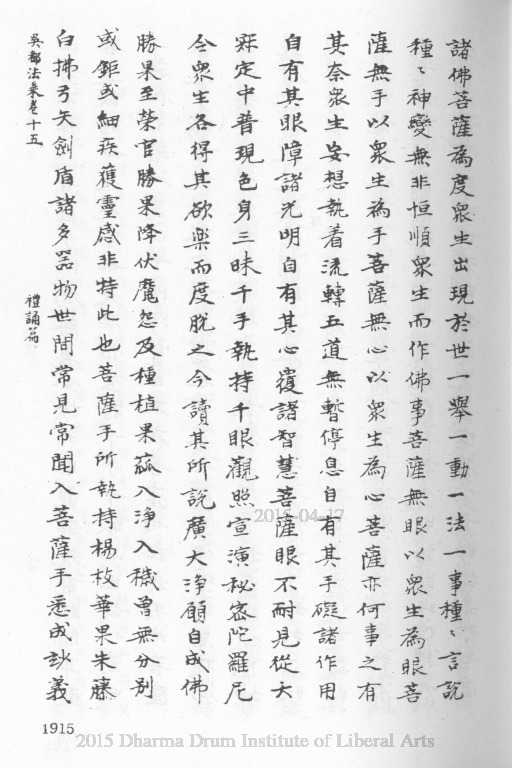 諸佛菩薩為度眾生出現於世一舉一動一法一事種〻言說
種〻神變無非恒順眾生而作佛事菩薩無眼以眾生為眼菩
薩無手以眾生為手菩薩無心以眾生為心菩薩亦何事之有
其奈眾生妄想執着流轉五道無暫停息自有其手礙諸作用
自有其眼障諸光明自有其心覆諸智慧菩薩眼不耐見從大
寂定中普現色身三昧千手執持千眼觀照宣演秘密陀羅尼
令眾生各得其欲樂而度脫之今讀其所說廣大淨願自成佛
勝果至榮官勝果降伏魔怨及種植果蓏入淨入穢曾無分別
或鉅或細疾獲靈感非特此也菩薩手所執持楊枝華果朱藤
白拂弓矢劍盾諸多器物世間常見常聞入菩薩手悉成妙義
吳都法乘卷十五
禮誦篇
1915
2015-04-17
2015 Dharma Drum Institute of Liberal Arts